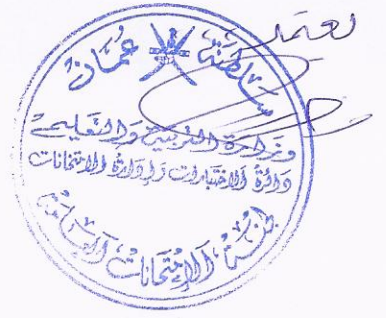 يعتمد
سلطنة عمان
وزارة التربية والتعليم
دائرة الاختبارات وإدارة الامتحانات
لجنة الامتحانات العامة